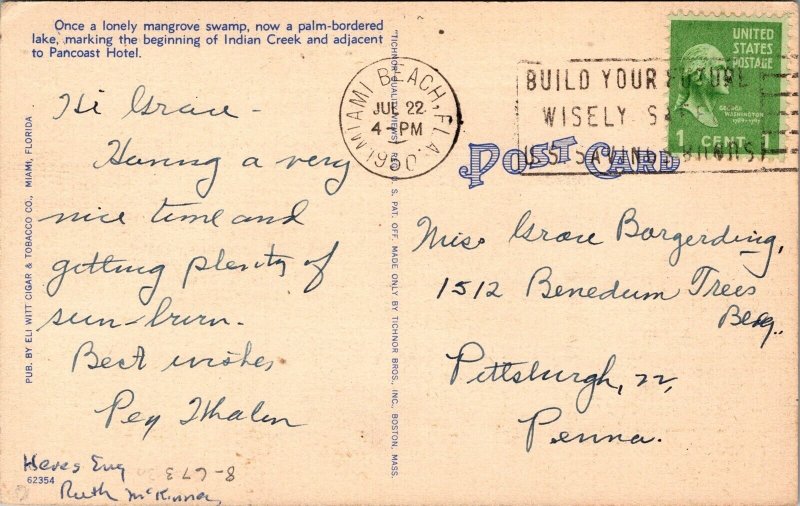 Once a lonely mangrove swamp, now a palm-bordered
lake, marking the beginning of Indian Creek and adjacent
to Pancoast Hotel.
Hi Grace -
Having a very
nice time and
getting plenty of
sun-burn.
Best wishes
Peg Whalen
Ruth McKinney
62354
8-673
PUB. BY ELI WITT CIGAR & TOBACCO CO., MIAMI, FLORIDA
"TICHNOR QUALITY VIEWS," REG. U. S. PAT. OFF. MADE ONLY BY TICHNOR BROS., INC., BOSTON, MASS.
MIAMI BEACH, FLA.
JUL 22
4 - PM
1950
BUILD YOUR FUTURE
WISELY
U.S. SAVINGS BONDS
UNITED
STATES
POSTAGE
GEORGE
WASHINGTON
1789-1797
1 CENT 1
POST CARD
Miss Grace Borgerding,
1512 Benedum Trees
Pittsburgh, 22,
Penna.